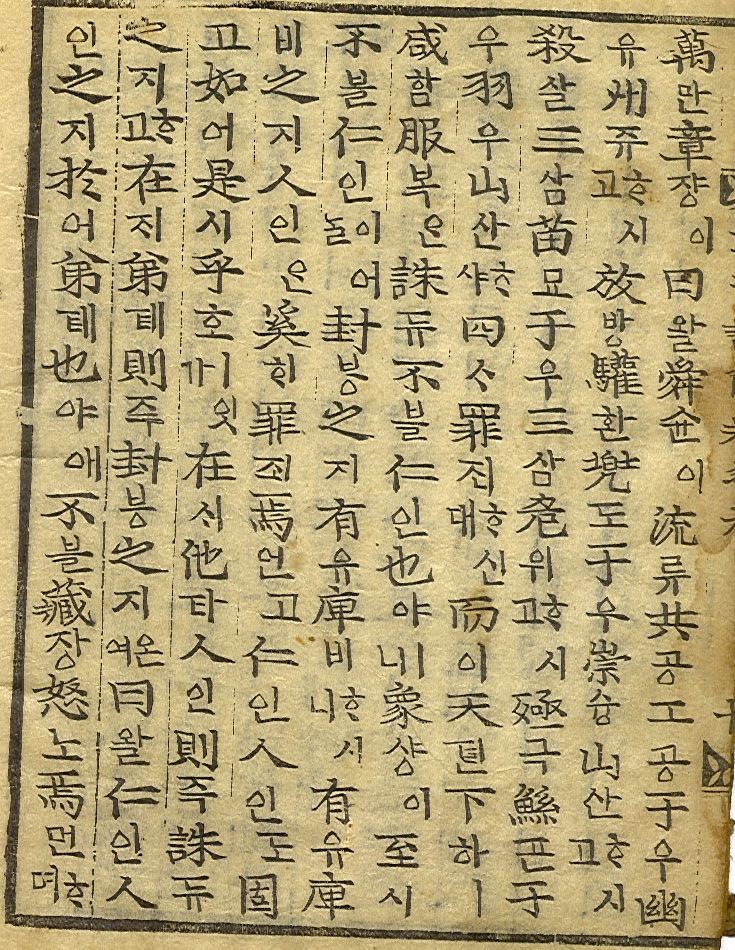 萬만章쟝이曰왈舜슌이流류共공工공于우幽
유州쥬ᄒᆞ시고放방驩환兜도于우崇슝山산ᄒᆞ시고
殺살三삼苗묘于우三삼危위ᄒᆞ시고殛극鯀곤于
우羽우山산ᄒᆞ샤四ᄉᆞ罪죄ᄒᆞ신대而이天텬下하ㅣ
咸함服복은誅듀不블仁인也야ㅣ니象샹이至지
不블仁인이어놀封봉之지有유庳비ᄒᆞ시니有유庳
비之지人인은奚ᄒᆡ罪죄焉언고仁인人인도固
고如여是시乎호ㅣ잇가在ᄌᆡ他타人인則즉誅듀
之지ᄒᆞ고在ᄌᆡ弟뎨則즉封봉之지온여曰왈仁인人
인之지於어弟뎨也야애不블藏장怒노焉언ᄒᆞ며